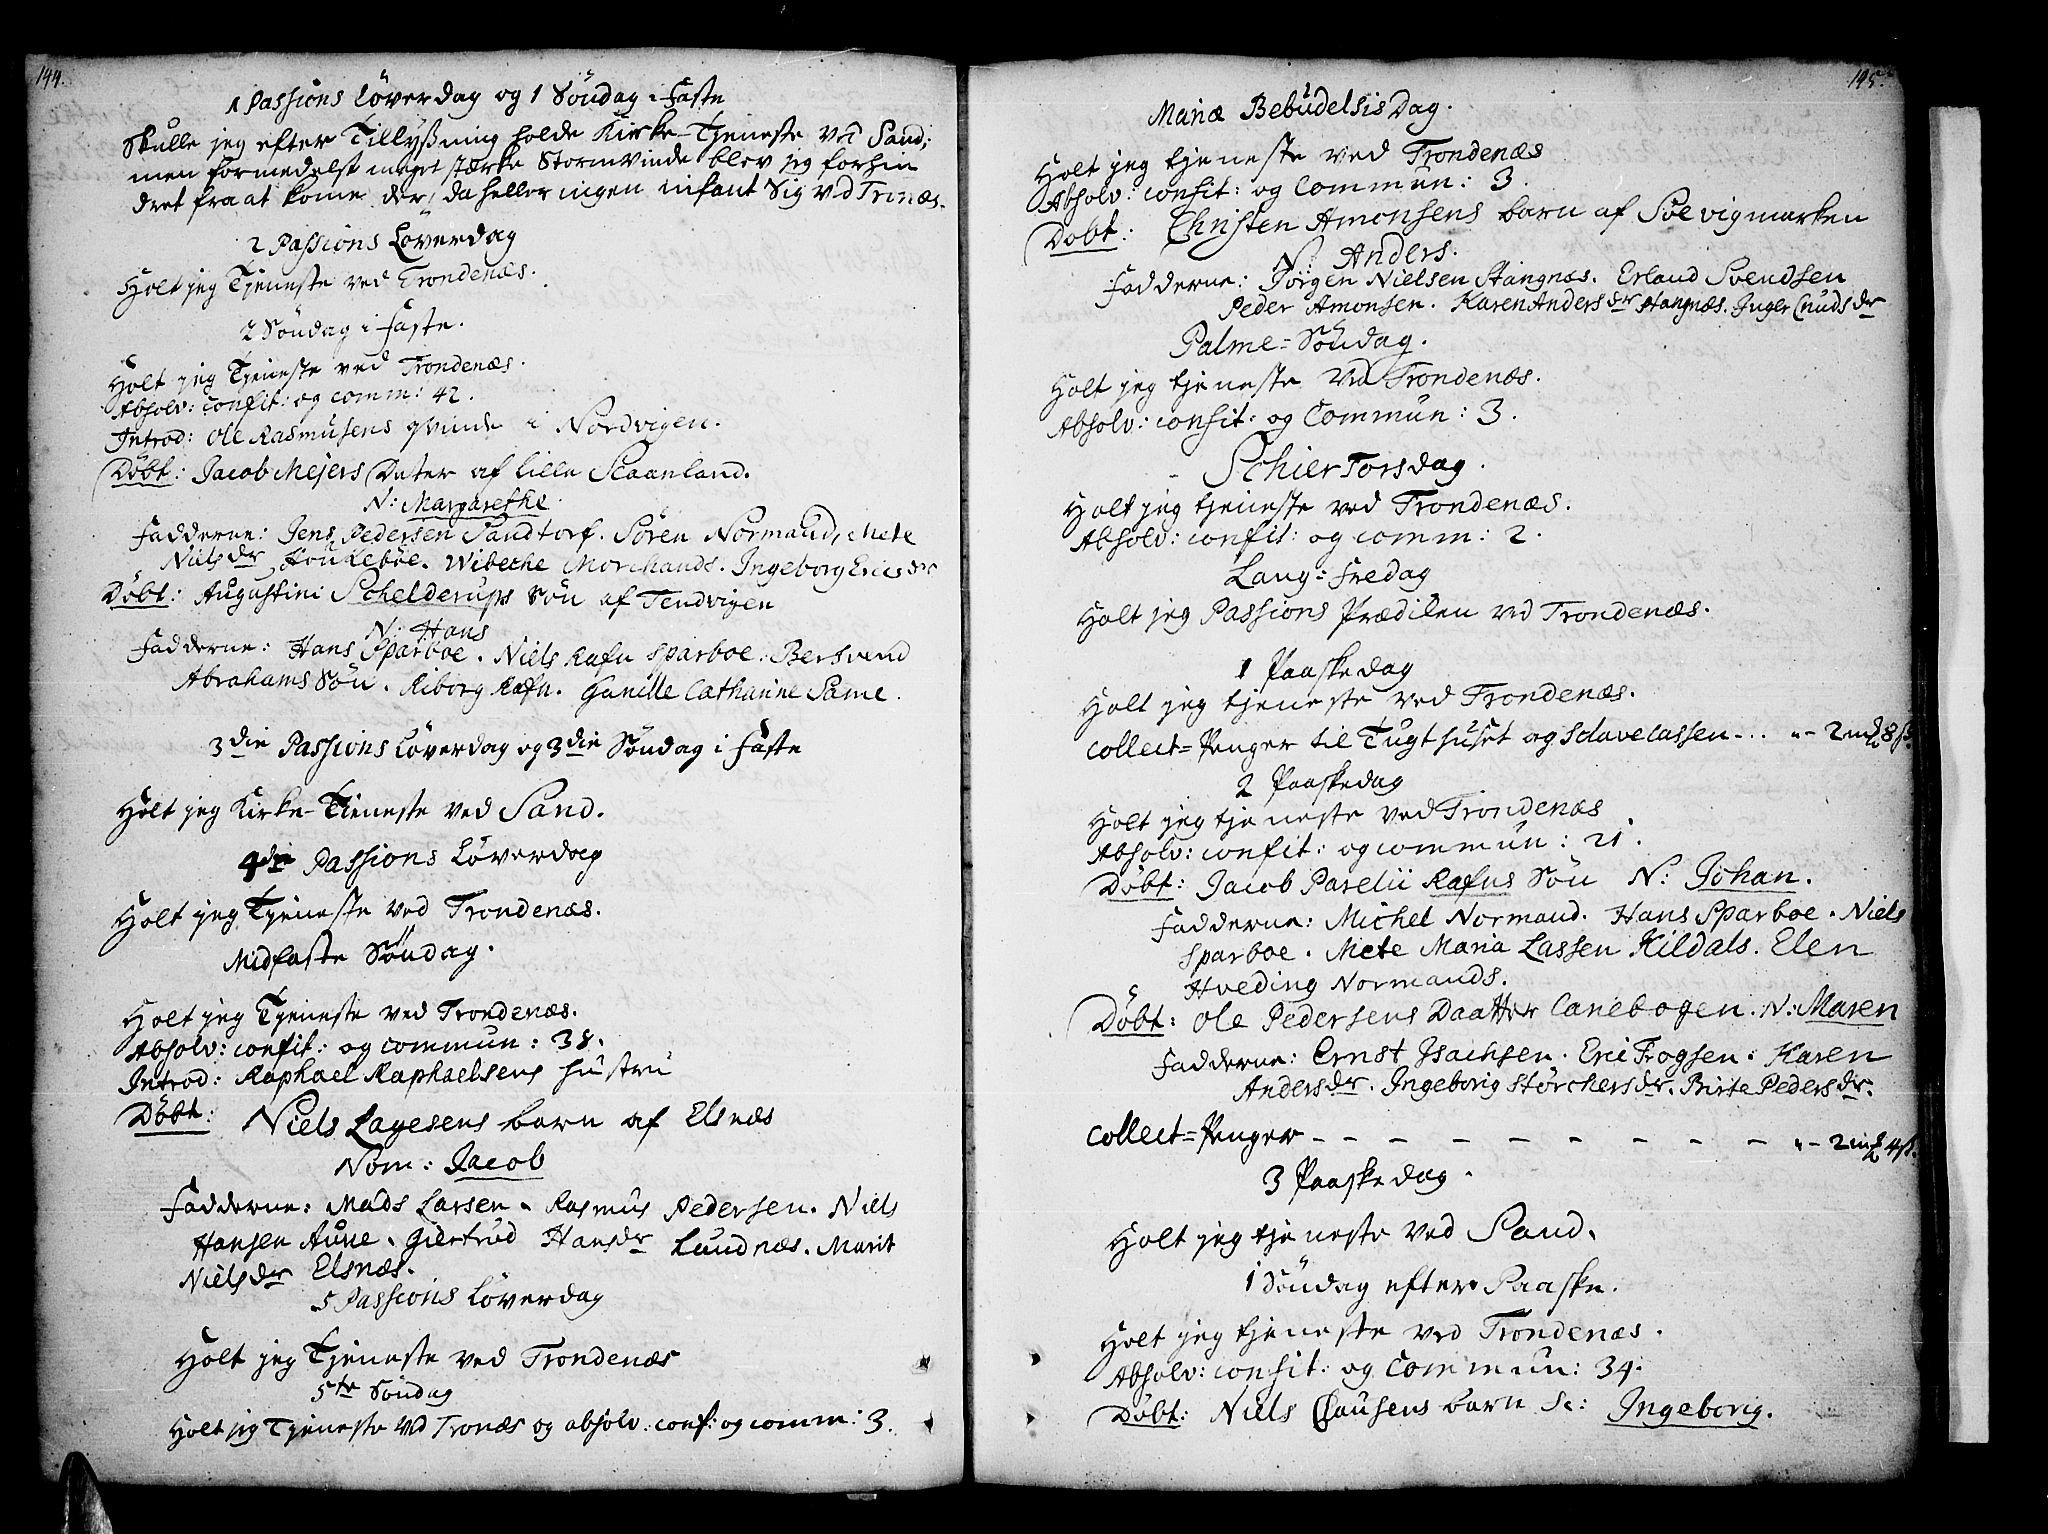 144.
1 Passions Löverdag og 1 Söndag i Faste
Skulle jeg efter Tillyßning holde Kirke-Tjeneste ved Sand;
men formedelst meget stærke Stormvinde blev jeg forhin
dret fra at kome der, da heller ingen infant Sig ved Trönæs.
2 Passions Löverdag
Holt jeg Tjeneste ved Trondenæs.
2 Söndag i Faste.
Holt jeg Tjeneste ved Trondenæs.
Absolv: confit: og comm: 42.
Introd: Ole Rasmusens qvinde i Nordvigen.
Döbt: Jacob Mejers Dater af Lille Scaanland.
N: Margarethe
Fadderne: Jens Pedersen Sandtorf. Sören Normand, Mete
Nielsdr Houkeböe. Wibeche Morchands. Ingeborg Ericsdr
Döbt: Augustini Schelderups Sön af Tendvigen
N: Hans
Fadderne: Hans Sparboe. Niels Rafn Sparboe. Bersvend
Abrahams Sön. Riborg Rafn. Gunille Catharine Same.
3die Passions Löverdag og 3die Söndag i Faste
Holt jeg Kirke-Tieneste ved Sand.
4de Passions Löverdag
Holt jeg Tjeneste ved Trondenæs.
Midfaste Söndag.
Holt jeg Tjeneste ved Trondenæs.
Absolv: confit: og commun: 38.
Introd: Raphael Raphaelsens hustru
Döbt: Niels Lagesens barn af Elsnæs
Nom: Jacob
Fadderne: Mads Larsen. Rasmus Pedersen. Niels
Hansen Aune. Giertrud Hansdr Lundnæs. Marit
Nielsdr Elsnæs.
5 Passions Löverdag
Holt jeg Tjeneste ved Trondenæs
5te Söndag
Holt jeg Tjeneste ved Tronæs og absolv: conf: og comm: 3.
145.
Mariæ Bebudelsis Dag.
Holt jeg tjeneste ved Trondenæs
Absolv: confit: og Commun: 3.
Döbt: Christen Amonsens barn af Soevigmarken
N: Anders.
Fadderne: Jörgen Nielsen Stangnæs. Erland Svendsen
Peder Amonsen. Karen Andersdr Stangnæs. Inger Cnudsdr
Palme-Söndag.
Holt jeg tjeneste ved Trondenæs.
Absolv: confit: og Commun: 3.
Schier Torsdag.
Holt jeg tjeneste ved Trondenæs.
Absolv: confit: og comm: 2.
Lang-Fredag
Holt jeg Passions Prædiken ved Trondenæs.
1 Paaskedag
Holt jeg tjeneste ved Trondenæs.
Collect-Penger til Tugthuset og Sclavecassen - . . " - 2 mk 8 s.
2 Paaskedag
Holt jeg tjeneste ved Trondenæs
Absolv: confit: og commun: 21.
Döbt: Jacob Parelii Rafns Sön N: Johan.
Fadderne: Michel Normand. Hans Sparboe. Niels
Sparboe. Mete Maria Lassen Kildals. Elen
Hveding Normands.
Döbt: Ole Pedersens Daatter Canebogen. N: Maren
Fadderne: Ernst Isachsen. Eric Trogsen. Karen
Andersdr. Ingeborig Störchersdr. Birte Pedersdr.
Collect-Penger - - - - - - - - - " - 2 mk 4 s.
3 Paaskedag.
Holt jeg tjeneste ved Sand.
1 Söndag efter Paaske.
Holt jeg tjeneste ved Trondenæs.
Absolv: confit: og Commun: 34.
Döbt: Niels Clausens barn Sc: Ingeborig.